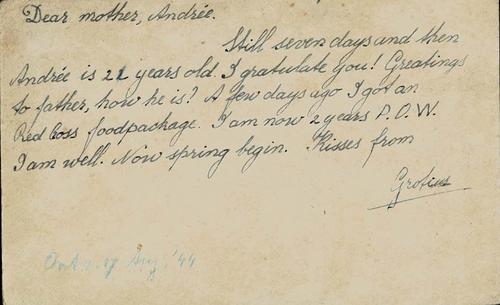 Dear mother, Andrée.
Still seven days and then
Andrée is 21 years old. I gratulate you! Greatings
to father, how he is? A few days ago I got an
Red Cross foodpackage. I am now 2 years P.O.W.
I am well. Now spring begin. Kisses from
Grotius
Ontv. 17 Aug. '44